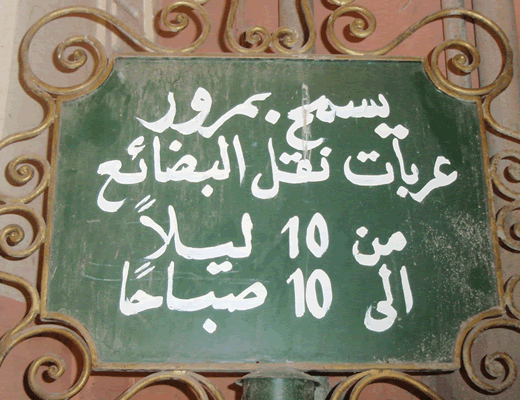 يسمح بمرور
عربات نقل البضائع
من 10 ليلاً
الى 10 صباحًا